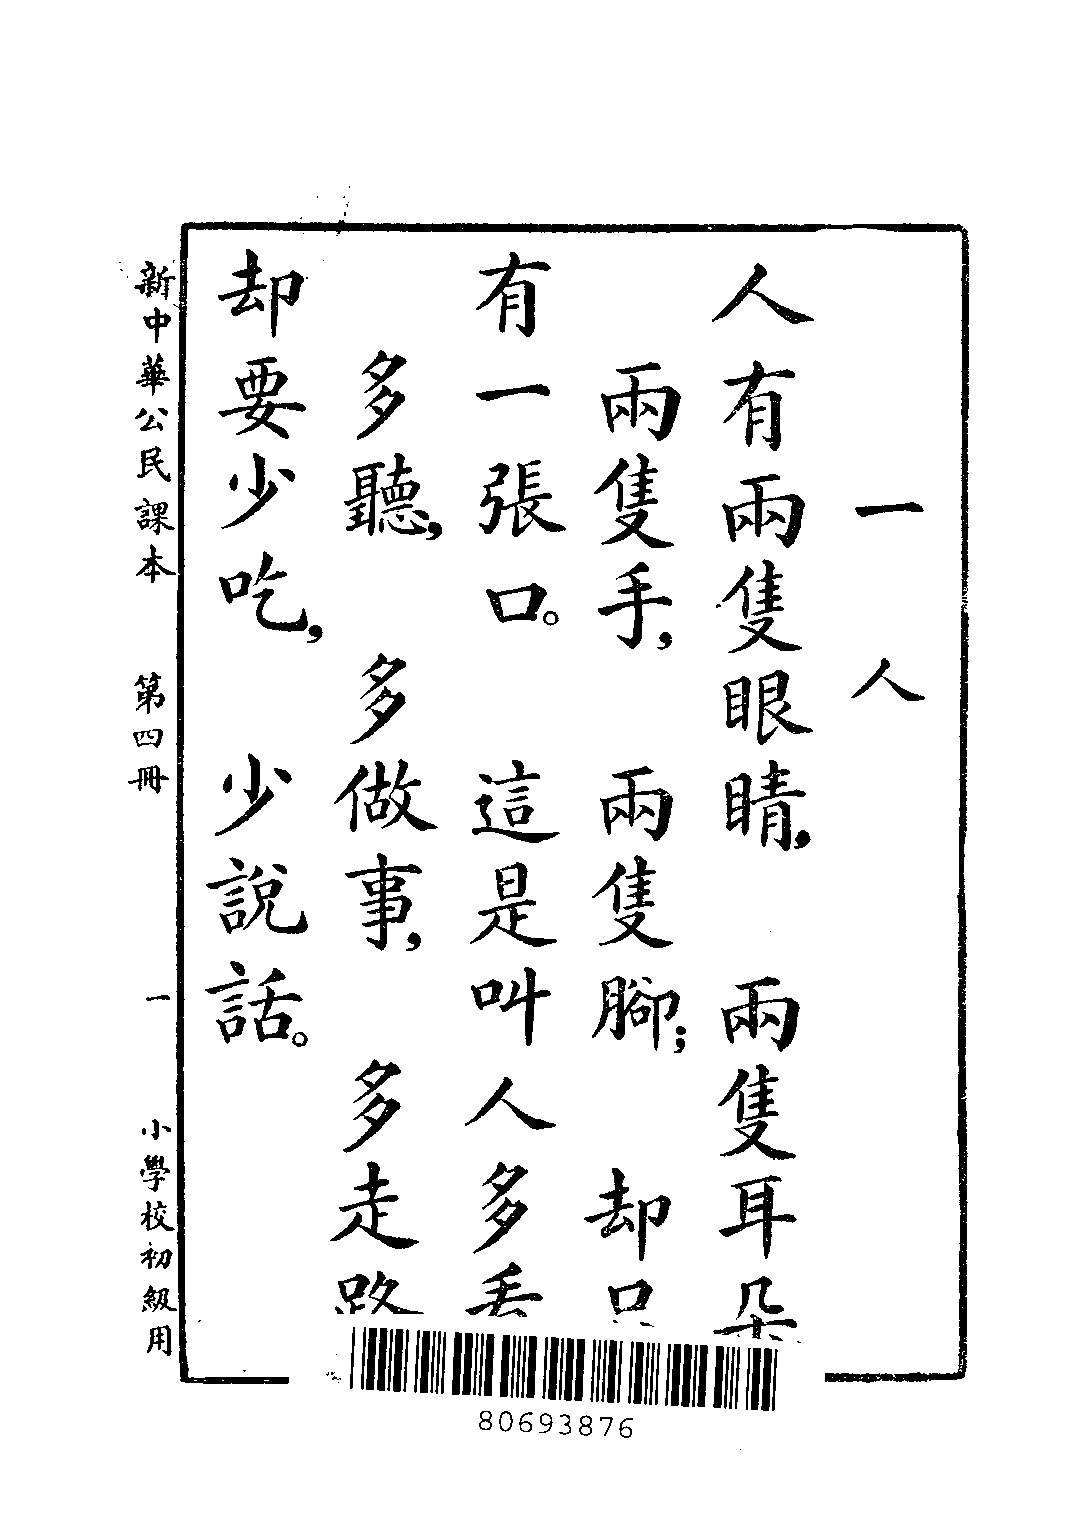 一 人
人有兩隻眼睛, 兩隻耳朵
兩隻手, 兩隻腳; 却只
有一張口。 這是叫人多看
多聽, 多做事, 多走路
却要少吃, 少說話。
新中華公民課本 第四冊 一 小學校初級用
80693876